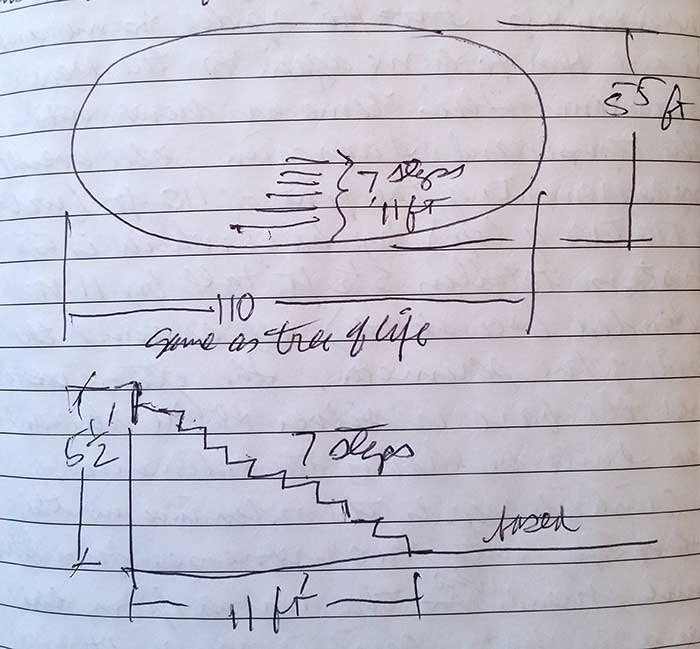 55 ft
7 steps
11 ft
110
same as tree of life
5 1/2'
7 steps
11 ft